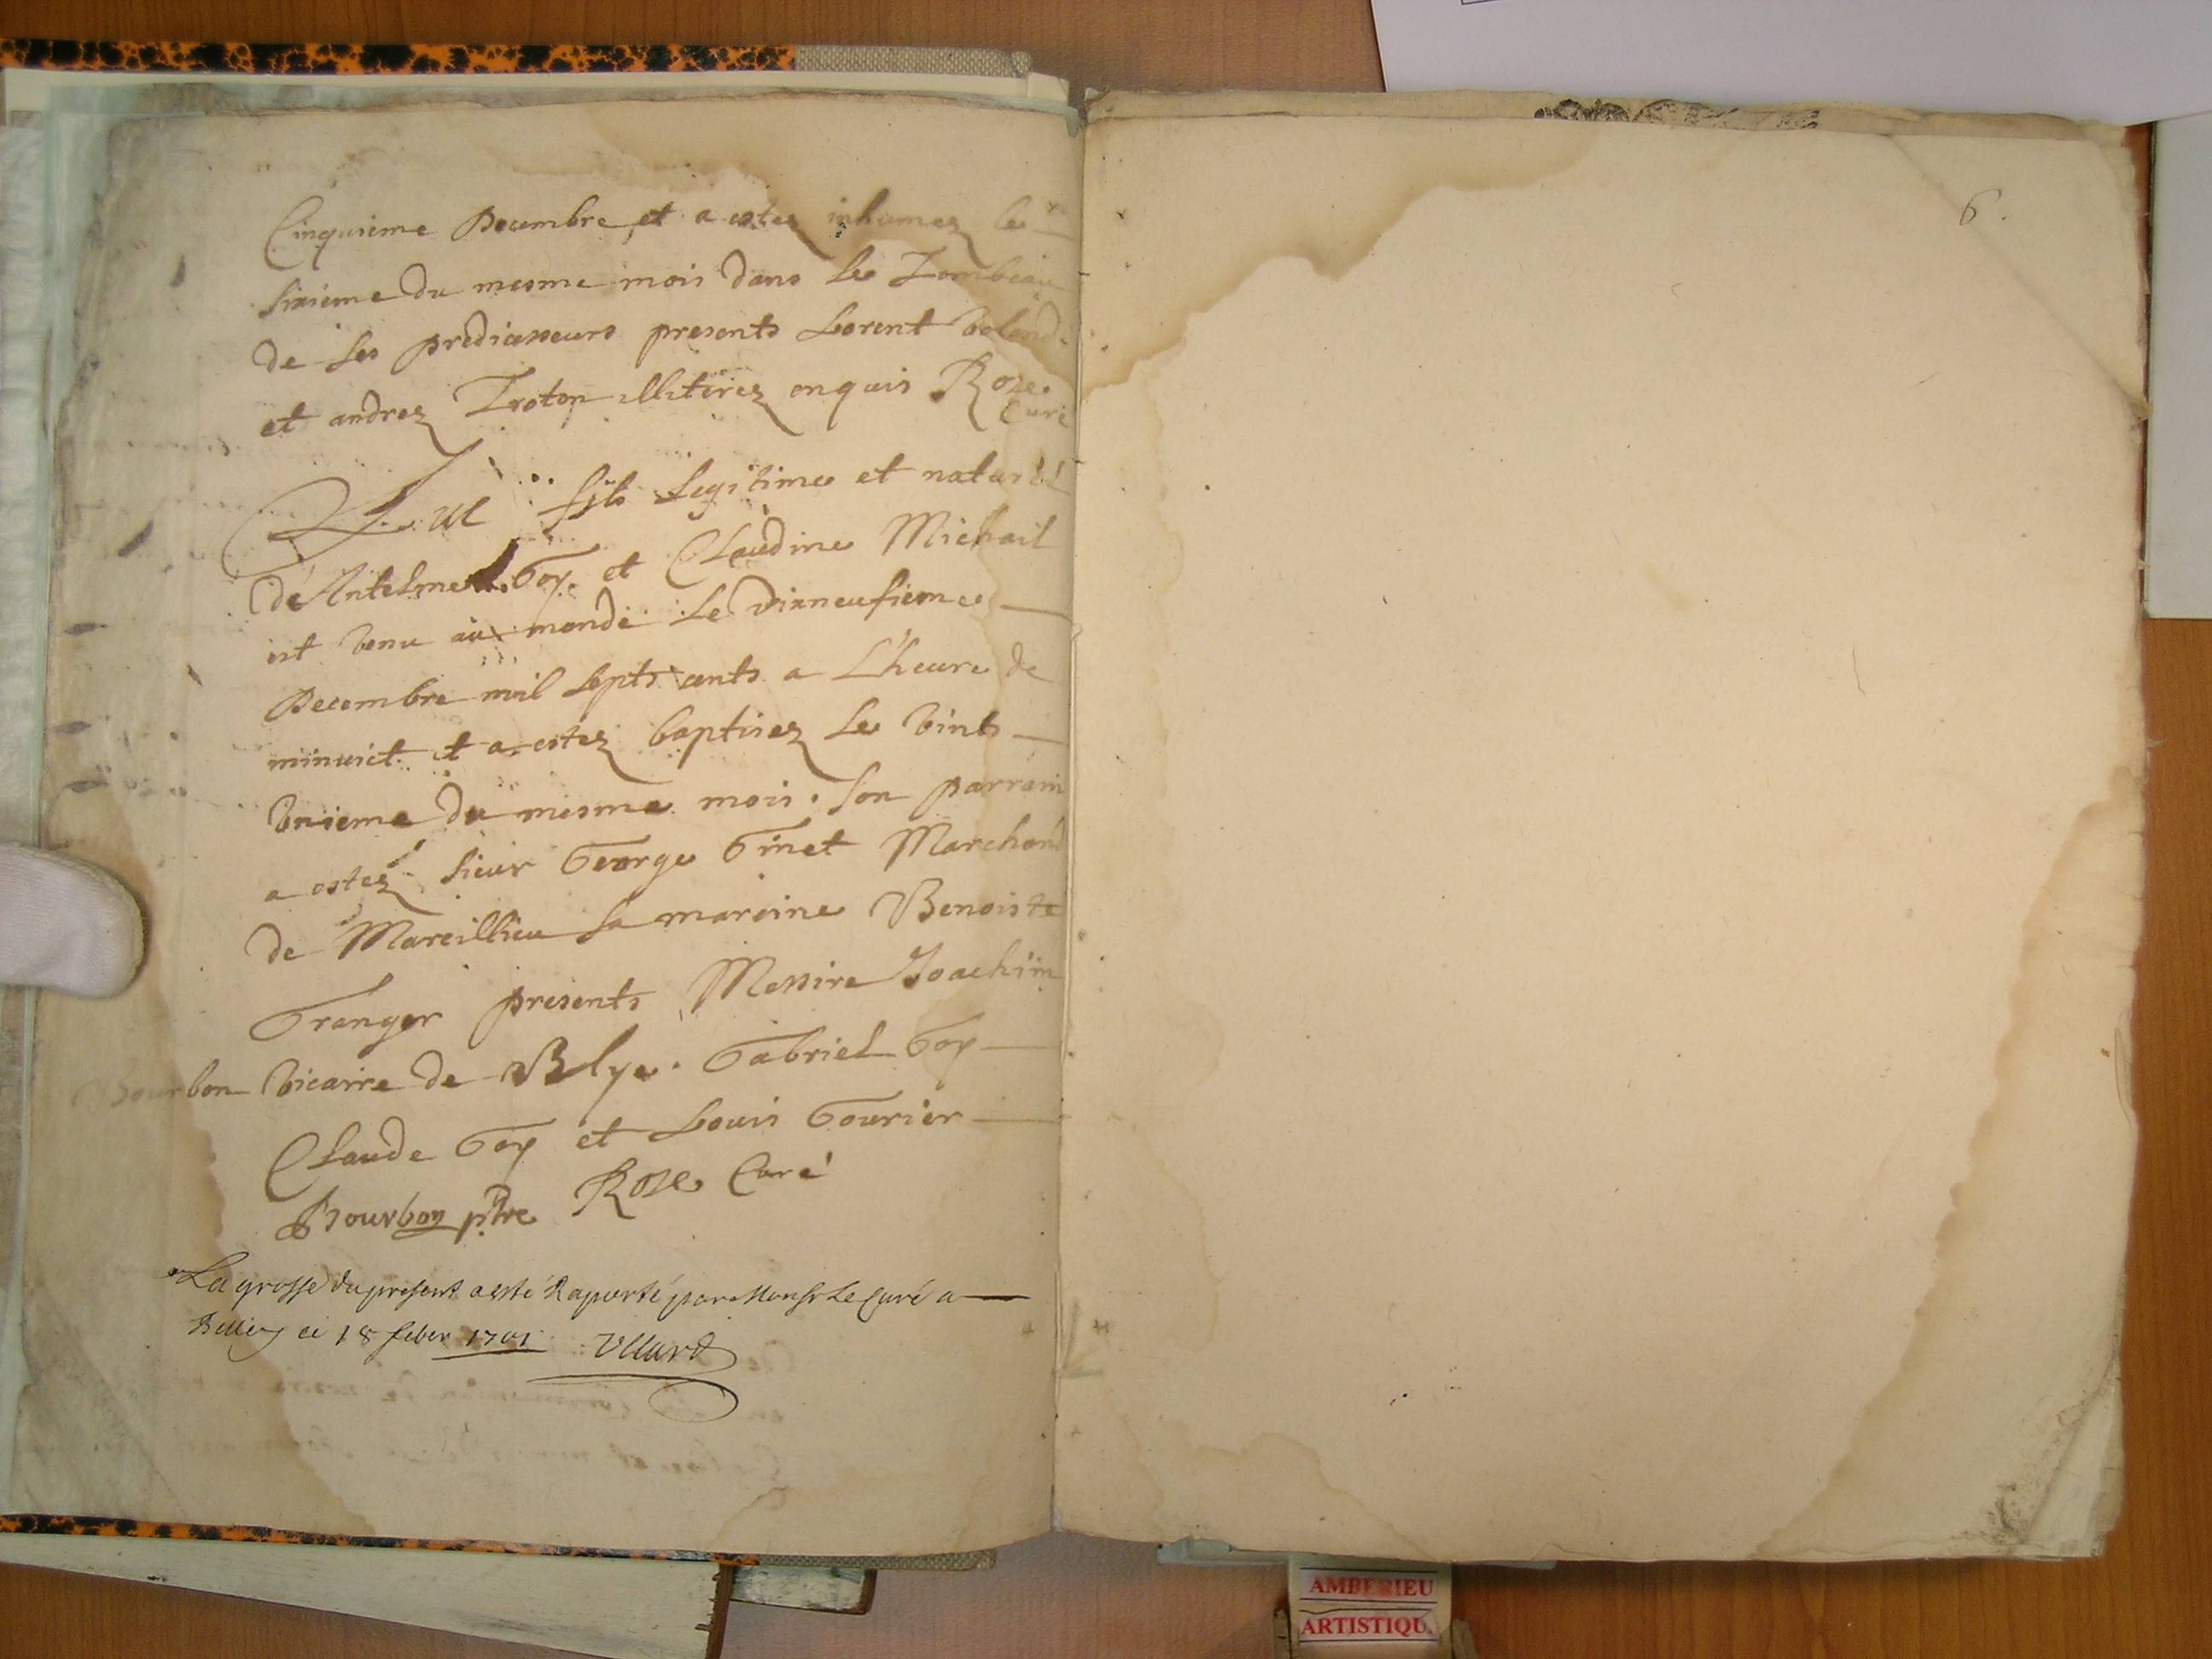 Cinquieme Decembre et a estez inhumez le
sixieme du mesme mois dans le Tombeau
de ses predicesseurs presents Lorent
et andrez Troton illiterez enquis Roze
Curé
fils legitime et naturel
de Antelme Goy et Claudine Michail
est venu au monde le dixneufieme
Decembre mil septs cents a L'heure de
minuict et a estez baptisez le vints
vnieme du mesme mois son parrain
a estez sieur George Ginet Marchand
de Marcillieu sa mareine Benoiste
Granger presents Messire Joachim
Bourbon vicaire de Blye Gabriel Goy
Claude Goy et Louis Gourier
Bourbon ptre Roze Curé
La grosse du present a esté Raporté par Monsr Le Curé a
Belley ce 18 feber 1701
6.
AMBERIEU
ARTISTIQU